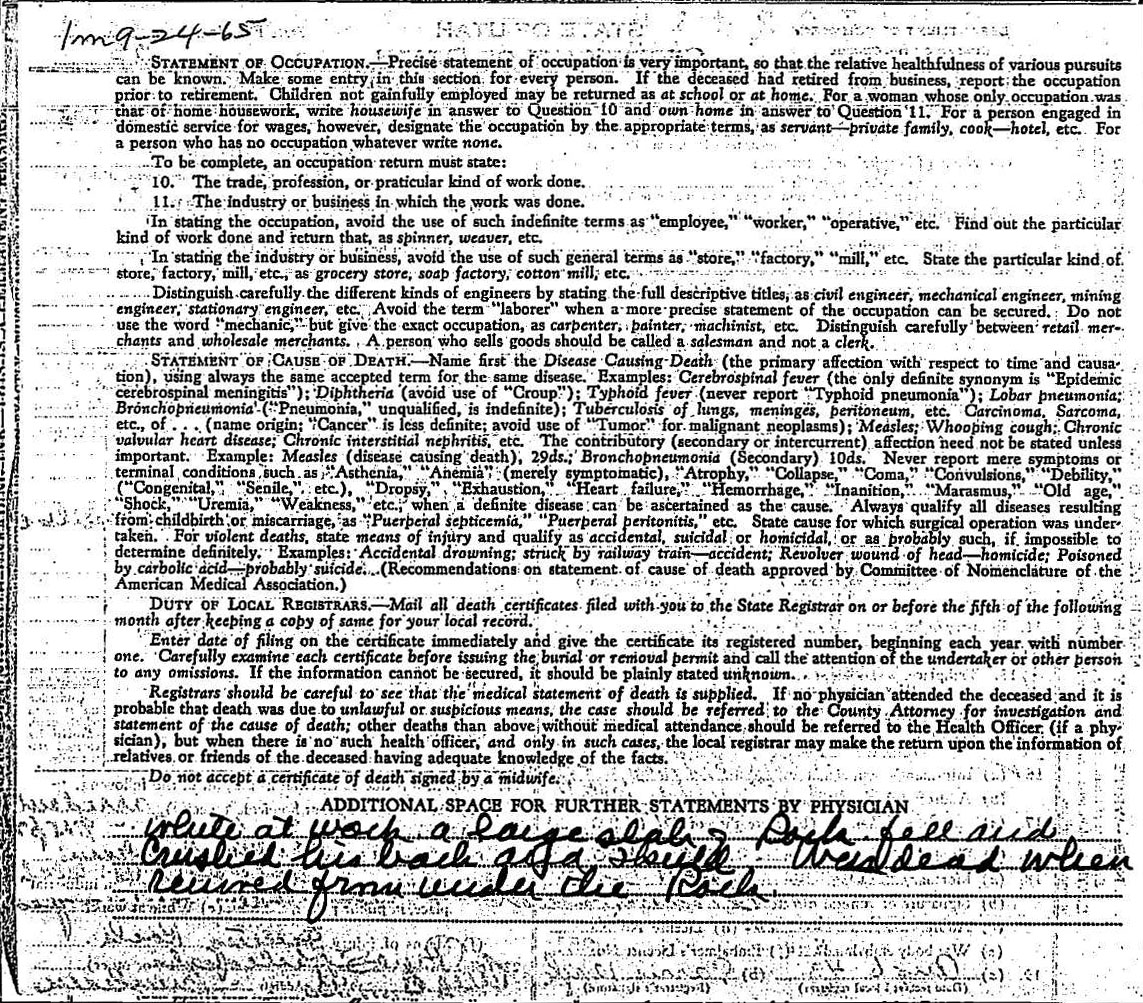 1m 9-24-65
STATE OF UTAH
STATEMENT OF OCCUPATION.—Precise statement of occupation is very important, so that the relative healthfulness of various pursuits
can be known. Make some entry in this section for every person. If the deceased had retired from business, report the occupation
prior to retirement. Children not gainfully employed may be returned as at school or at home. For a woman whose only occupation was
that of home housework, write housewife in answer to Question 10 and own home in answer to Question 11. For a person engaged in
domestic service for wages, however, designate the occupation by the appropriate terms, as servant—private family, cook—hotel, etc. For
a person who has no occupation whatever write none.
To be complete, an occupation return must state:
10. The trade, profession, or praticular kind of work done.
11. The industry or business in which the work was done.
In stating the occupation, avoid the use of such indefinite terms as "employee," "worker," "operative," etc. Find out the particular
kind of work done and return that, as spinner, weaver, etc.
In stating the industry or business, avoid the use of such general terms as "store," "factory," "mill," etc. State the particular kind of
store, factory, mill, etc., as grocery store, soap factory, cotton mill, etc.
Distinguish carefully the different kinds of engineers by stating the full descriptive titles, as civil engineer, mechanical engineer, mining
engineer, stationary engineer, etc. Avoid the term "laborer" when a more precise statement of the occupation can be secured. Do not
use the word "mechanic," but give the exact occupation, as carpenter, painter, machinist, etc. Distinguish carefully between retail mer-
chants and wholesale merchants. A person who sells goods should be called a salesman and not a clerk.
STATEMENT OF CAUSE OF DEATH.—Name first the Disease Causing Death (the primary affection with respect to time and causa-
tion), using always the same accepted term for the same disease. Examples: Cerebrospinal fever (the only definite synonym is "Epidemic
cerebrospinal meningitis"); Diphtheria (avoid use of "Croup"); Typhoid fever (never report "Typhoid pneumonia"); Lobar pneumonia;
Bronchopneumonia ("Pneumonia," unqualified, is indefinite); Tuberculosis of lungs, meninges, peritoneum, etc. Carcinoma, Sarcoma,
etc., of . . . (name origin; "Cancer" is less definite; avoid use of "Tumor" for malignant neoplasms); Measles; Whooping cough; Chronic
valvular heart disease; Chronic interstitial nephritis, etc. The contributory (secondary or intercurrent) affection need not be stated unless
important. Example: Measles (disease causing death), 29ds.; Bronchopneumonia (Secondary) 10ds. Never report mere symptoms or
terminal conditions, such as "Asthenia," "Anemia" (merely symptomatic), "Atrophy," "Collapse," "Coma," "Convulsions," "Debility,"
("Congenital," "Senile," etc.), "Dropsy," "Exhaustion," "Heart failure," "Hemorrhage," "Inanition," "Marasmus," "Old age,"
"Shock," "Uremia," "Weakness," etc., when a definite disease can be ascertained as the cause. Always qualify all diseases resulting
from childbirth or miscarriage, as "Puerperal septicemia," "Puerperal peritonitis," etc. State cause for which surgical operation was under-
taken. For violent deaths, state means of injury and qualify as accidental, suicidal or homicidal, or as probably such, if impossible to
determine definitely. Examples: Accidental drowning; struck by railway train—accident; Revolver wound of head—homicide; Poisoned
by carbolic acid—probably suicide. (Recommendations on statement of cause of death approved by Committee of Nomenclature of the
American Medical Association.)
DUTY OF LOCAL REGISTRARS.—Mail all death certificates filed with you to the State Registrar on or before the fifth of the following
month after keeping a copy of same for your local record.
Enter date of filing on the certificate immediately and give the certificate its registered number, beginning each year with number
one. Carefully examine each certificate before issuing the burial or removal permit and call the attention of the undertaker or other person
to any omissions. If the information cannot be secured, it should be plainly stated unknown.
Registrars should be careful to see that the medical statement of death is supplied. If no physician attended the deceased and it is
probable that death was due to unlawful or suspicious means, the case should be referred to the County Attorney for investigation and
statement of the cause of death; other deaths than above without medical attendance should be referred to the Health Officer (if a phy-
sician), but when there is no such health officer, and only in such cases, the local registrar may make the return upon the information of
relatives or friends of the deceased having adequate knowledge of the facts.
Do not accept a certificate of death signed by a midwife.
ADDITIONAL SPACE FOR FURTHER STATEMENTS BY PHYSICIAN
while at work a large slab of Rock fell and
crushed his back and Was dead when
from under the Rock.